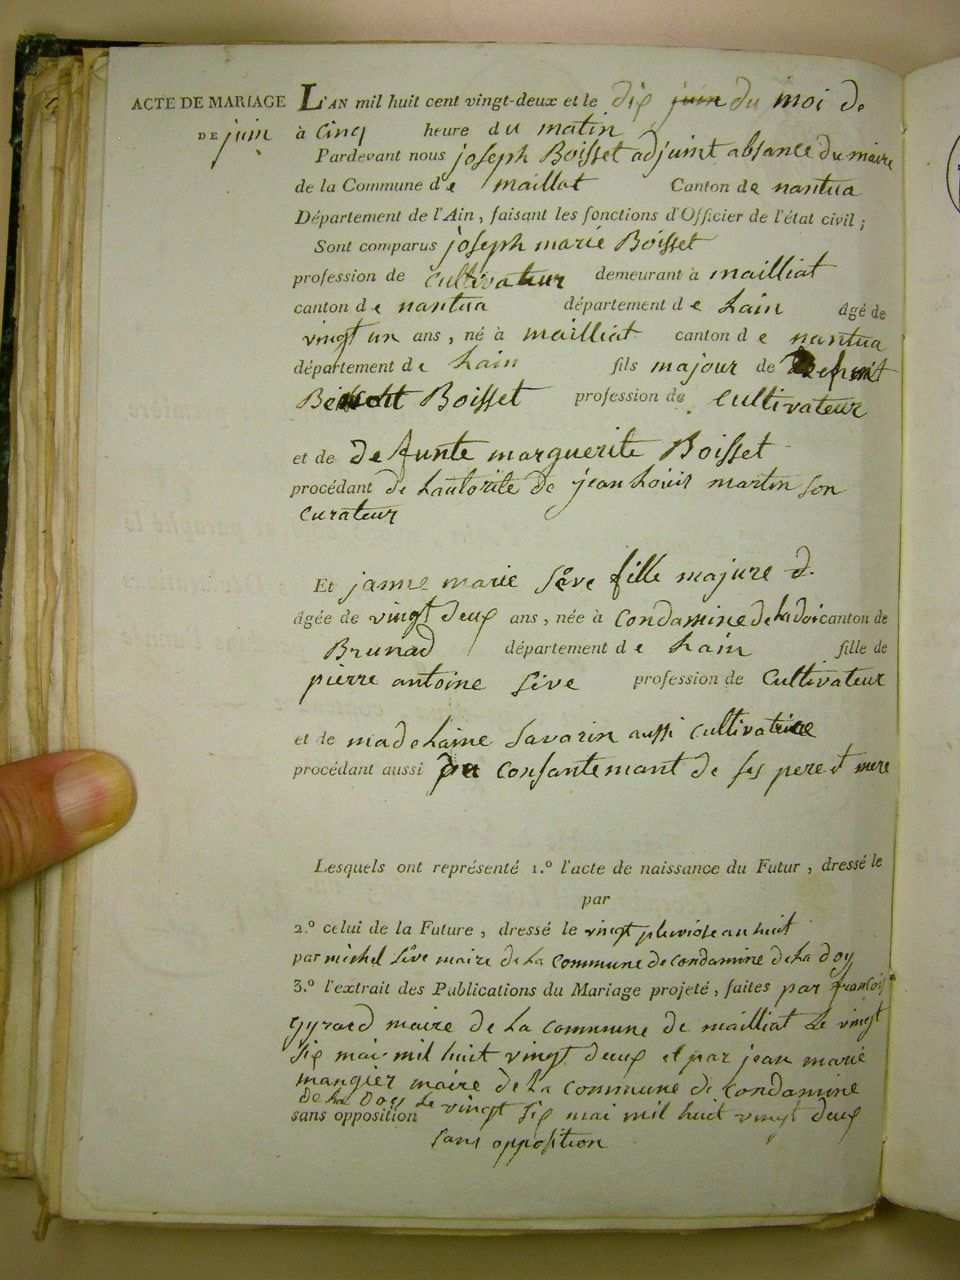 ACTE DE MARIAGE L'AN mil huit cent vingt-deux et le dix juin du moi de
DE juin à cinq heure du matin
Pardevant nous joseph Boisset adjuint absance du maire
de la Commune de maillat Canton de nantua
Département de l'Ain, faisant les fonctions d'Officier de l'état civil;
Sont comparus joseph marie Boisset
profession de cultivateur demeurant à mailliat
canton de nantua département de hain âgé de
vingt un ans, né à mailliat canton de nantua
département de hain fils majour de defunt
Boisset profession de cultivateur
et de defunte marguerite Boisset
procédant de hautorite de jean houis martin son
curateur
Et janne marie sève fille majure d.
âgée de vingt deux ans, née à condamine de la doi canton de
Brunad département de hain fille de
pierre antoine sive profession de cultivateur
et de madelaine savarin aussi cultivatrice
procédant aussi du consantemant de ses pere et mere
Lesquels ont représenté 1.º l'acte de naissance du Futur, dressé le
par
2.º celui de la Future, dressé le vingt pluviose an huit
par michel sève maire de la commune de condamine de la doy
3.º l'extrait des Publications du Mariage projeté, faites par françois
gyraed maire de la commune de mailliat le vingt
six mai mil huit vingt deux et par jean marie
mangier maire de la commune de condamine
de la doy le vingt six mai mil huit vingt deux
sans opposition
sans opposition